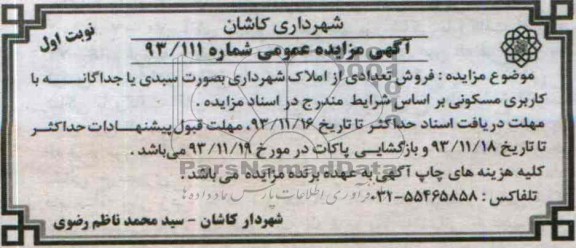 شهرداری کاشان
نوبت اول
آگهی مزایده عمومی شماره ۹۳/۱۱۱
موضوع مزایده : فروش تعدادی از املاک شهرداری بصورت سبدی یا جداگانه با
کاربری مسکونی بر اساس شرایط مندرج در اسناد مزایده .
مهلت دریافت اسناد حداکثر تا تاریخ ۹۳/۱۱/۱۶، مهلت قبول پیشنهادات حداکثر
تا تاریخ ۹۳/۱۱/۱۸ و بازگشایی پاکات در مورخ ۹۳/۱۱/۱۹ می‌باشد .
ParsNamadData
کلیه هزینه های چاپ آگهی به عهده برنده مزایده می باشد .
تلفاکس : ۵۵۴۶۵۸۵۸-۰۳۱
فرآوری اطلاعات پارس نماد داده ها
شهردار کاشان - سید محمد ناظم رضوی